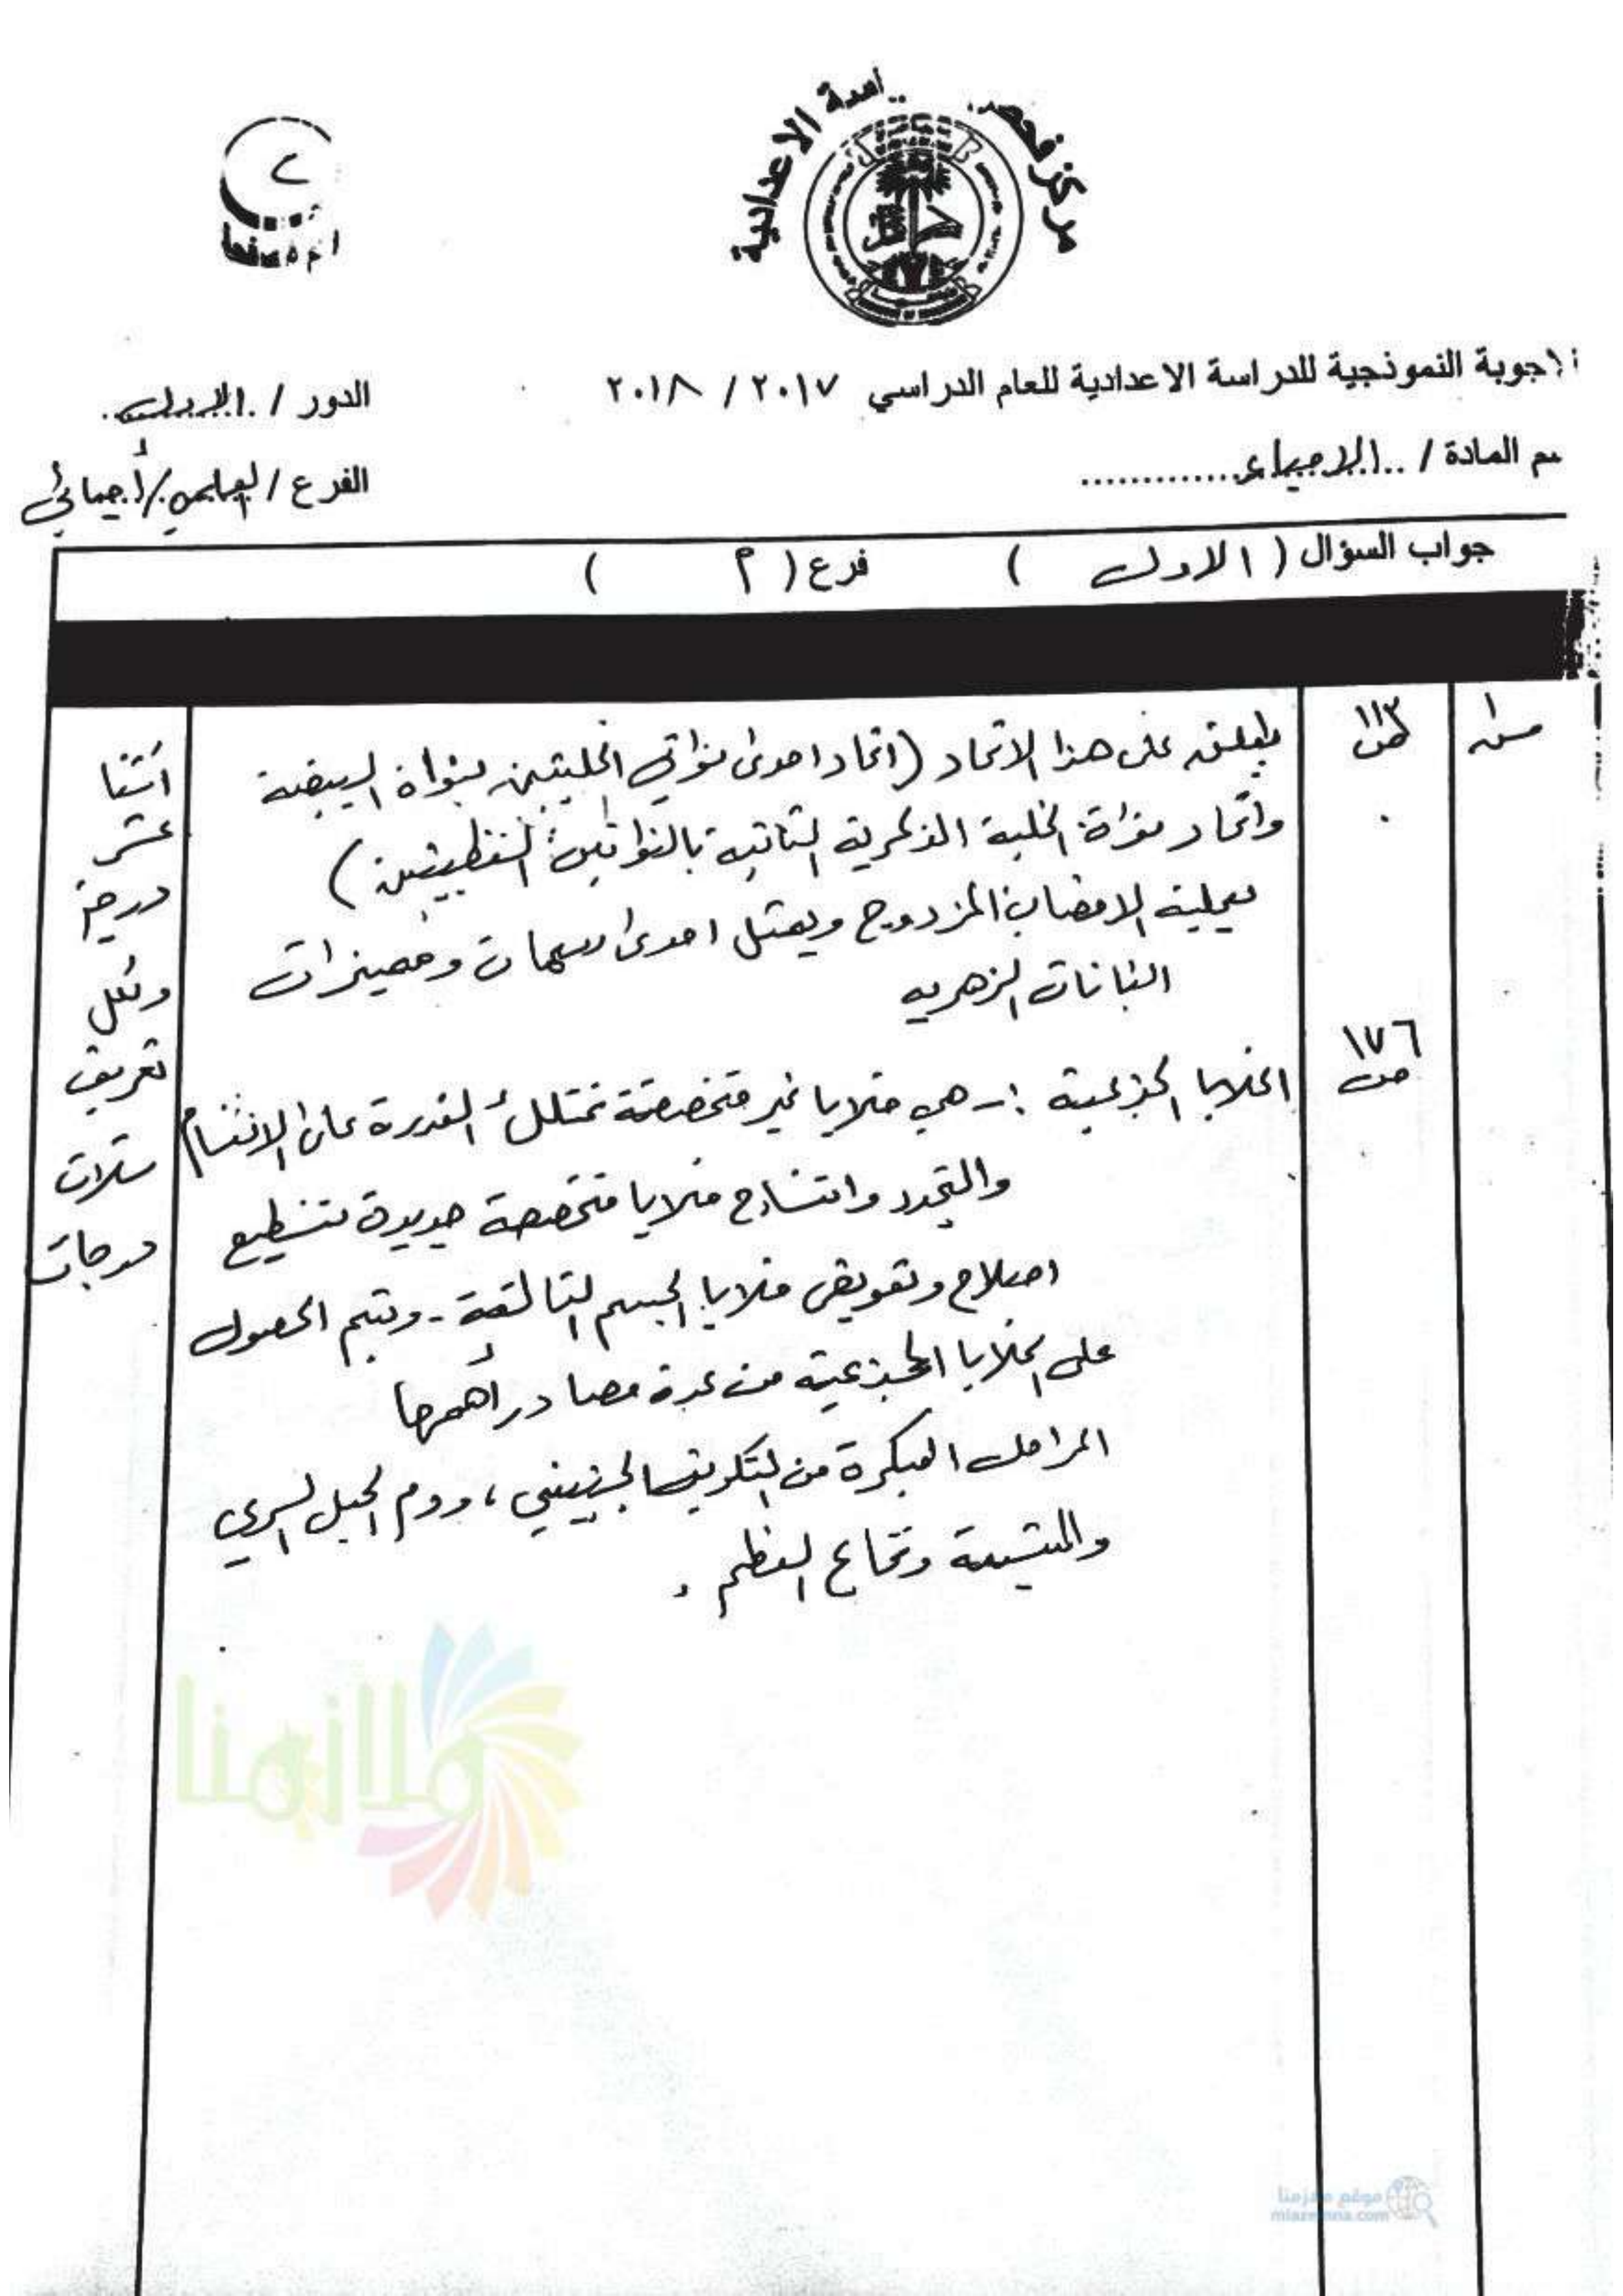 مركز فحص
الاعدادية
٢
الاجوبة النموذجية للدراسة الاعدادية للعام الدراسي ٢٠١٧ / ٢٠١٨
الدور / الاول
سم المادة / الاحياء
الفرع / العلمي / أحيائي
جواب السؤال ( الاول ) فرع ( ٢ )
س١
ص ١١٣
يطلق على هذا الاتحاد (اتحاد احدى نواتي الخليتين بنواة البيضة
واتحاد نواة الخلية الذكرية الثانية بالنواتين القطبيتين)
بعملية الاخصاب المزدوج ويمثل احدى سمات ومميزات
النباتات الزهرية
ص ١٧٦
الخلايا الجذعية :- هي خلايا غير متخصصة تمتلك القدرة على الانقسام
والتجدد وانتاج خلايا متخصصة جديدة تستطيع
اصلاح وتعويض خلايا الجسم التالفة - ويتم الحصول
على الخلايا الجذعية من عدة مصادر أهمها
المراحل المبكرة من التكوين الجنيني ، ودم الحبل السري
والمشيمة ونخاع العظم .
اثنا
عشر
درجة
ولكل
تعريف
ثلاث
درجات
ملازمنا
موقع ملازمنا
mlazemna.com